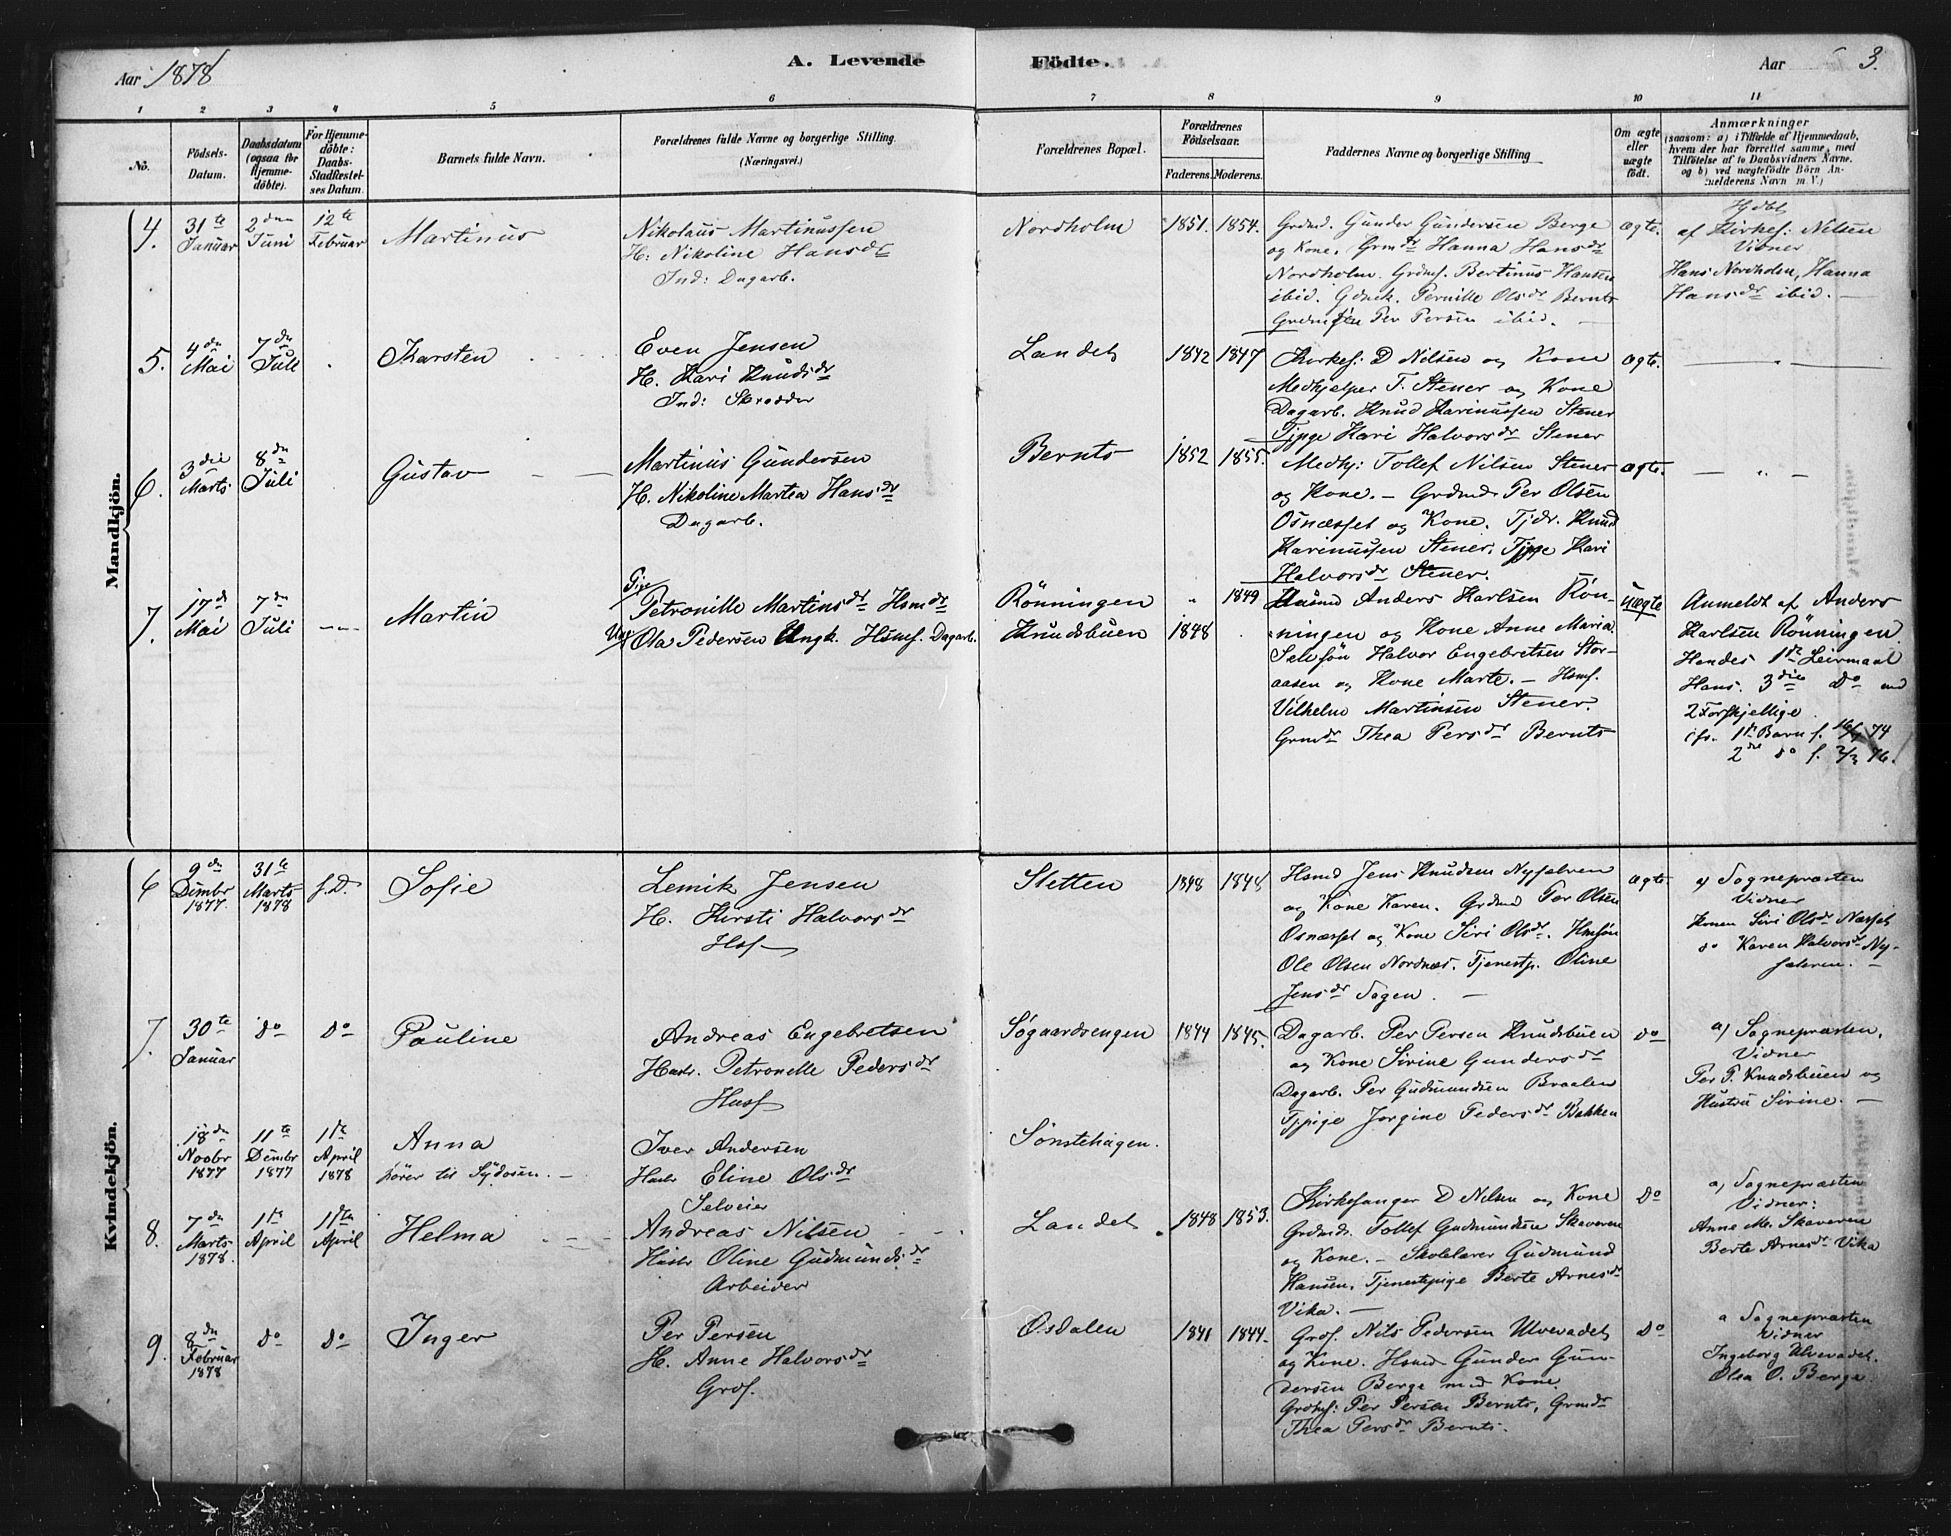 Aar 1878
A. Levende Födte.
Aar 3.
1 2 3 4 5 6 7 8 9 10 11
No.
Fødsels-Datum.
Daabsdatum (ogsaa for Hjemme-døbte).
For Hjemme-døbte: Daabs-Stadfæstel-ses Datum.
Barnets fulde Navn.
Forældrenes fulde Navne og borgerlige Stilling. (Næringsvei.)
Forældrenes Bopæl.
Forældrenes Fødselsaar.
Faderens. Moderens.
Faddernes Navne og borgerlige Stilling
Om ægte eller uægte født.
Anmærkninger
(saasom: a) i Tilfælde af Hjemmedaab,
hvem der har forrettet samme, med
Tilføielse af to Daabsvidners Navne.
og b) ved uægtefødte Börn An-
melderens Navn m. V.)
Mandkjön.
4. 31te Januar 2den Juni 12te Februar Martinus
Nikolaus Martinussen
H: Nikoline Hansdr
Ind: Dagarb.
Nordholm 1851. 1854.
Grdmd. Gunder Gundersen Berge
og Kone. Grmdr Hanna Hansdr
Nordholm. Grdmf. Bertinus Hansen
ibid. Gdmk. Pernille Olsdr Bernts
Per Persen ibid.
Ægte.
Hjdbt
af Kirkes: Nilsen
Vidner
Hans Nordholm, Hanna
Hansdr ibid. —
5. 4de Mai 7de Juli Karsten
Even Jensen
H. Kari Knudsdr
Ind: Skrædder
Landet 1842 1847
Kirkes: D Nilsen og Kone
Medhjelper T. Stener og Kone
Dagarb. Knud Karinussen Stener
Tjpge Kari Halvorsdr Stener
Ægte.
6. 3die Marts 8de Juli Gustav
Martinus Gundersen
H. Nikoline Martea Hansdr
Dagarb.
Bernts 1852 1855.
Medhj: Tollef Nilsen Stener
og Kone. — Grdmd. Per Olsen
Osnæsset og Kone. Tjdr. Knud
Karinussen Stener. Tjpge Kari
Halvorsdr Stener.
Ægte.
7. 17de Mai 7de Juli Martin
Pige Petronille Martinsdr Hsmdr
Ungk Ola Pedersen Ungk. Hsmf. Dagarb.
Rönningen 1849
Knudsbuen 1848
Husmd Anders Karlsen Røn-
ningen og Kone Anne Maria.
Selvsøn Halvor Engebretsen Stor-
aasen og Kone Marte. — Hsmf.
Vilhelm Martinsen Stener.
Grmdr Thea Persdr Bernts
Uægte
Anmeldt af Anders
Karlsen Rönningen.
Hendes 1ste Leiermaal
Hans. 3die Do med
2 Forskjellige.
1ste Barn f. 74
2det do f. 2/3 76.
Kvindekjön.
6 9de Dcmbr 1877. 31te Marts 1878 f. D. Sofie
Lemik Jensen
H. Kirsti Halvorsdr
Hsf
Sletten 1848 1848
Hsmd Jens Knudsen Nysæteren
og Kone Karen. Grdmd Tor Olsen
Osnæsset og Kone Siri Olsdr. Hmsøn
Ole Olsen Nordnæs. Tjenestp. Oline
Jensdr Hagen. —
Ægte.
a) Sognepræsten
Vidner
Konen Siri Olsdr Næsset
do Karen Halvorsdr Ny-
sæteren. —
7. 30te Januar do do Pauline
Andreas Engebretsen
Hustr. Petronelle Pedersdr
Husf
Søgaardsengen 1844 1845.
Dagarb. Per Persen Knudsbuen
og Kone Sirine Gundersdr
Dagarb. Per Gudmundsen Braalen
Tjpige Jorgine Pedersdr Bakken
do
a) Sognepræsten.
Vidner
Per P. Knudsbuen og
Hustru Sirine. —
18de Novbr 1877 11te Dcmbr 1877 1ste April 1878 Anna
hører til Sydosen. —
Iver Andersen
Hustr Eline Olsdr
Selveier
Sønstehagen.
8. 7de Marts 1878. 1ste April 1ste April Helma
Andreas Nilsen
Hustr Oline Gudmundsdr
Arbeider
Landet 1848 1853.
Kirkesanger D Nilsen og Kone
Grdmd. Tollef Gudmundsen Skaveren
og Kone. — Skolelærer Gudmund
Hansen. Tjenestepige Berte Arnesdr
Vika. —
Do
a) Sognepræsten
Vidner:
Anne M. Skaveren
Berte Arnesdr Vika
9. 8de Februar 1878 do do Inger
Per Persen
H. Anne Halvorsdr
Grdf.
Osdalen 1841 1844.
Grdf. Nils Pedersen Ulvevadet
og Kone. Hsmd Gunder Gun-
dersen Berge med Kone
Grdmf: Per Persen Bernts, Grmdr
Thea Persdr Bernts.
Do
a Sognepræsten
Vidner
Ingeborg Ulvevadet.
Olea O. Berge.